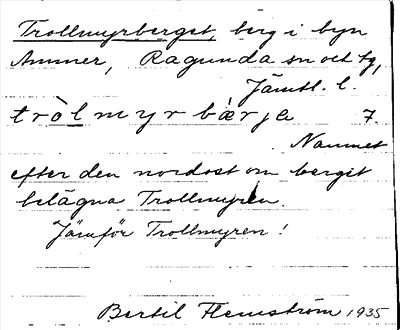 Trollmyrberget, berg i byn
Ammer, Ragunda sn och tg,
Jämtl. l.
tròlmyrbærja 7.
Namnet
efter den nordost om berget
belägna Trollmyren.
Jämför Trollmyren!
Bertil Flemström 1935